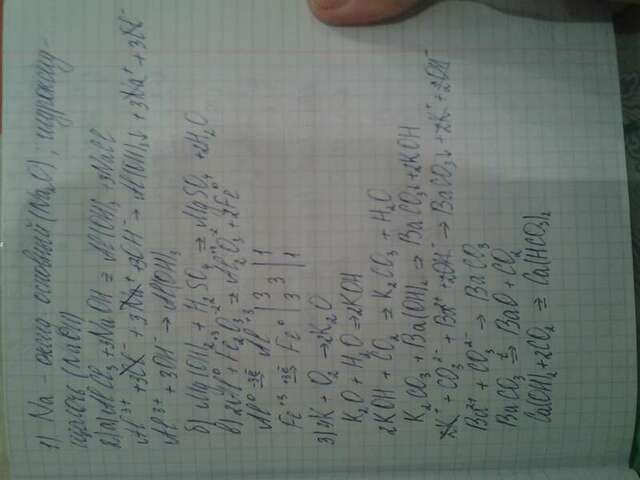 1) Na - оксид основный (Na₂O), гидроксид-
щелочь (NaOH)
2) а) AlCl₃ + 3NaOH = Al(OH)₃ + 3NaCl
Al³⁺ + 3Cl⁻ + 3Na⁺ + 3OH⁻ → Al(OH)₃↓ + 3Na⁺ + 3Cl⁻
Al³⁺ + 3OH⁻ → Al(OH)₃
б) Mg(OH)₂ + H₂SO₄ = MgSO₄ + 2H₂O
в) 2Al⁰ + Fe₂⁺³O₃⁻² = Al₂⁺³O₃⁻² + 2Fe⁰
Al⁰ -3e⁻→ Al⁺³ | 3 | 3 | 1
Fe⁺³ +3e⁻→ Fe⁰ | 3 | 1
3) 4K + O₂ → 2K₂O
K₂O + H₂O → 2KOH
2KOH + CO₂ = K₂CO₃ + H₂O
K₂CO₃ + Ba(OH)₂ = BaCO₃↓ + 2KOH
2K⁺ + CO₃²⁻ + Ba²⁺ + 2OH⁻ → BaCO₃↓ + 2K⁺ + 2OH⁻
Ba²⁺ + CO₃²⁻ → BaCO₃
BaCO₃ =t→ BaO + CO₂
Ca(OH)₂ + 2CO₂ = Ca(HCO₃)₂